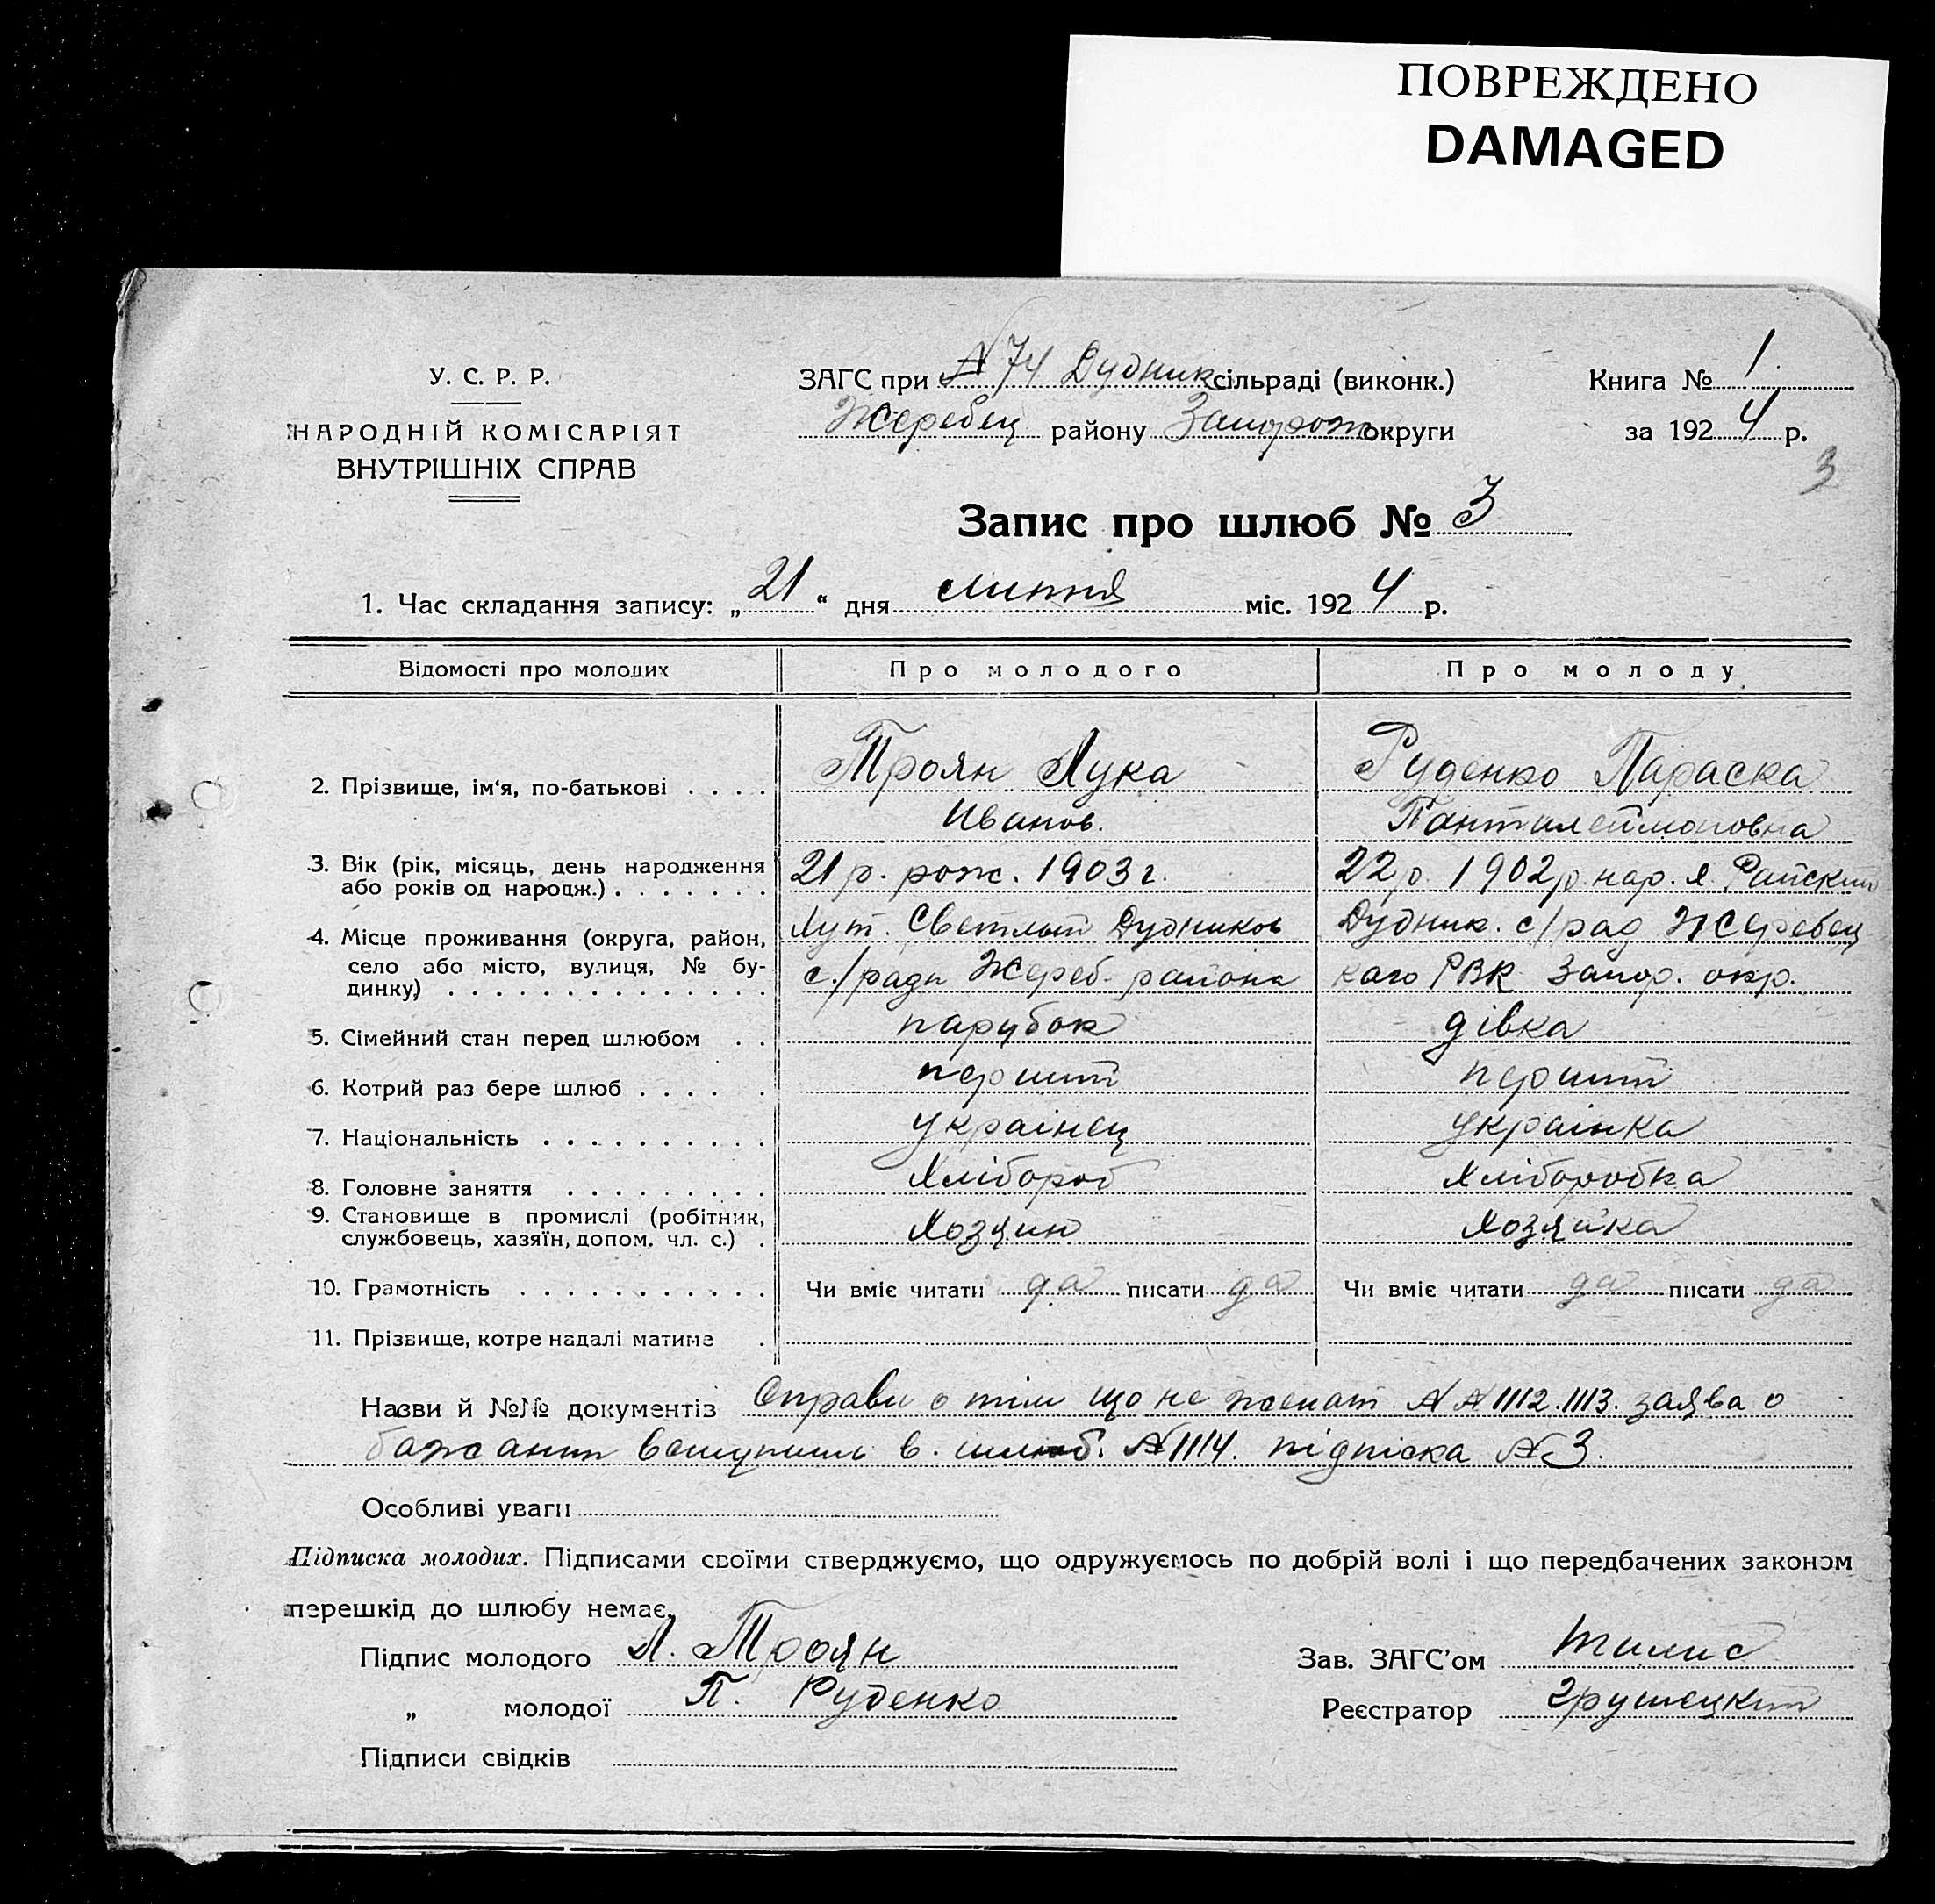 ПОВРЕЖДЕНО
DAMAGED
У. С. Р. Р.
НАРОДНІЙ КОМІСАРІЯТ
ВНУТРІШНІХ СПРАВ
ЗАГС при № 74 Дудник сільраді (виконк.)
Жеребец району Запорож округи
Книга № 1
за 1924 р.
3
Запис про шлюб № 3
1. Час складання запису: „21“ дня липня міс. 1924 р.
Відомості про молодих Про молодого Про молоду
2. Прізвище, ім'я, по-батькові . . . . Троян Лука Руденко Параска
Иванов. Пантилеймоновна
3. Вік (рік, місяць, день народження або років од народж.) . . . . . . . 21 р. рож. 1903 г. 22 р. 1902 р. нар. х. Райский
4. Місце проживання (округа, район, село або місто, вулиця, № будинку) . . . . . . . . . . . . . . Хут. Светлый Дудников Дудник. с/рад Жеребец
с./ради Жереб. района каго РВК Запор. окр.
5. Сімейний стан перед шлюбом . . парубок дівка
6. Котрий раз бере шлюб . . . . . перший перший
7. Національність . . . . . . . . . . українец українка
8. Головне заняття . . . . . . . . . Хлібороб Хлиборобка
9. Становище в промислі (робітник, службовець, хазяїн, допом. чл. с.) . Хозяин Хозяйка
10. Грамотність . . . . . . . . . . . Чи вміє читати да писати да Чи вміє читати да писати да
11. Прізвище, котре надалі матиме .
Назви й №№ документів Справи о тім що не женат №№ 1112. 1113. заява о
бажании вступить в. шлюб. № 1114. підпіска № 3.
Особливі уваги
Підписка молодих. Підписами своїми стверджуємо, що одружуємось по добрій волі і що передбачених законом
перешкід до шлюбу немає.
Підпис молодого Л. Троян Зав. ЗАГС'ом
„ молодої П. Руденко Реєстратор Грушецкий
Підписи свідків